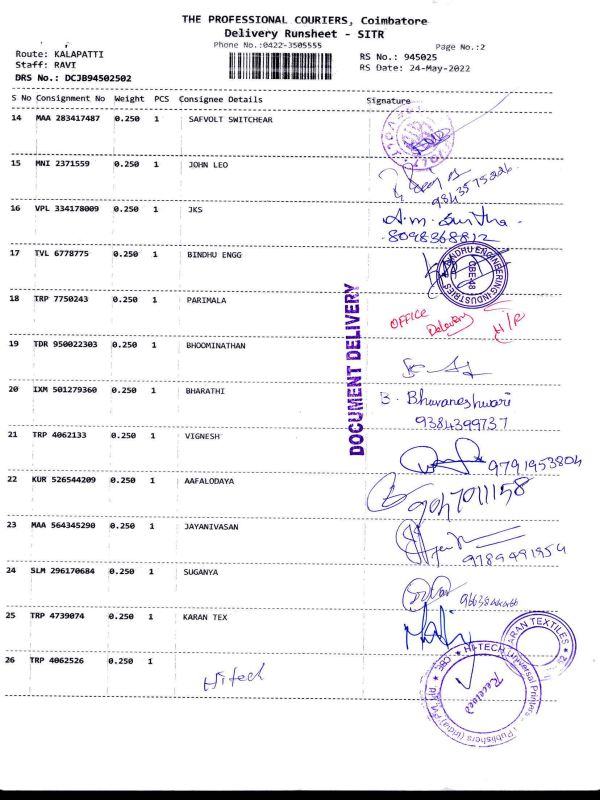 THE PROFESSIONAL COURIERS, Coimbatore
Delivery Runsheet - SITR
Phone No.:0422-3505555
Page No.:2
Route: KALAPATTI
Staff: RAVI
DRS No.: DCJB94502502
RS No.: 945025
RS Date: 24-May-2022
S No Consignment No Weight PCS Consignee Details Signature
14 MAA 283417487 0.250 1 SAFVOLT SWITCHEAR
15 MNI 2371559 0.250 1 JOHN LEO
16 VPL 334178009 0.250 1 JKS
8098368812
17 TVL 6778775 0.250 1 BINDHU ENGG
BINDHU ENGINEERING INDUSTRIES
CBE-48
18 TRP 7750243 0.250 1 PARIMALA
OFFICE Delivery H/R
DOCUMENT DELIVERY
19 TDR 950022303 0.250 1 BHOOMINATHAN
20 IXM 501279360 0.250 1 BHARATHI
B. Bhuvaneshwari
9384399737
21 TRP 4062133 0.250 1 VIGNESH
9791953804
22 KUR 526544209 0.250 1 AAFALODAYA
9047011158
23 MAA 564345290 0.250 1 JAYANIVASAN
9789491954
24 SLM 296170684 0.250 1 SUGANYA
25 TRP 4739074 0.250 1 KARAN TEX
KARAN TEXTILES
26 TRP 4062526 0.250 1
Hitech
HI-TECH Universal Printers
Publishers (India) Pvt
CBE
Received